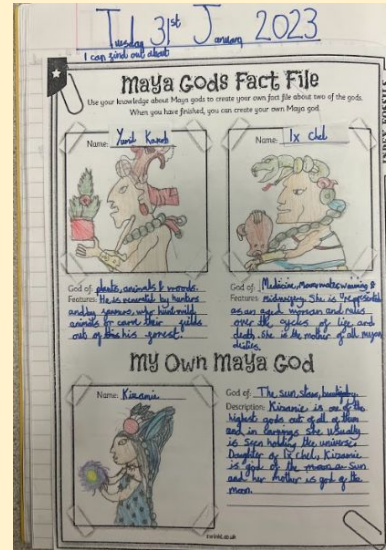 Tuesday 31st January 2023
I can find out about
Maya Gods Fact File
Use your knowledge about Maya gods to create your own fact file about two of the gods.
When you have finished, you can create your own Maya god.
Name: Yumil Kaxob
Name: Ix Chel
God of: plants, animals & woods.
Features: He is by hunters
and by farmers, who hunt wild
animals or carve their fields
out of his forest.
God of: Medicine, Moon, water, weaving &
Features: midwifery. She is "represented
as an aged woman and rules
over the cycles of life and
death. She is the mother of all mayan
deities.
My Own Maya God
Name: Kizanie
God of: The sun, stars,
Description: Kizanie is one of the
highest gods out of all of them
and in she usually
is seen holding the universe.
Daughter of Ix Chel, Kizanie
is god of the sun
and her mother is god of the
moon.
twinkl.co.uk